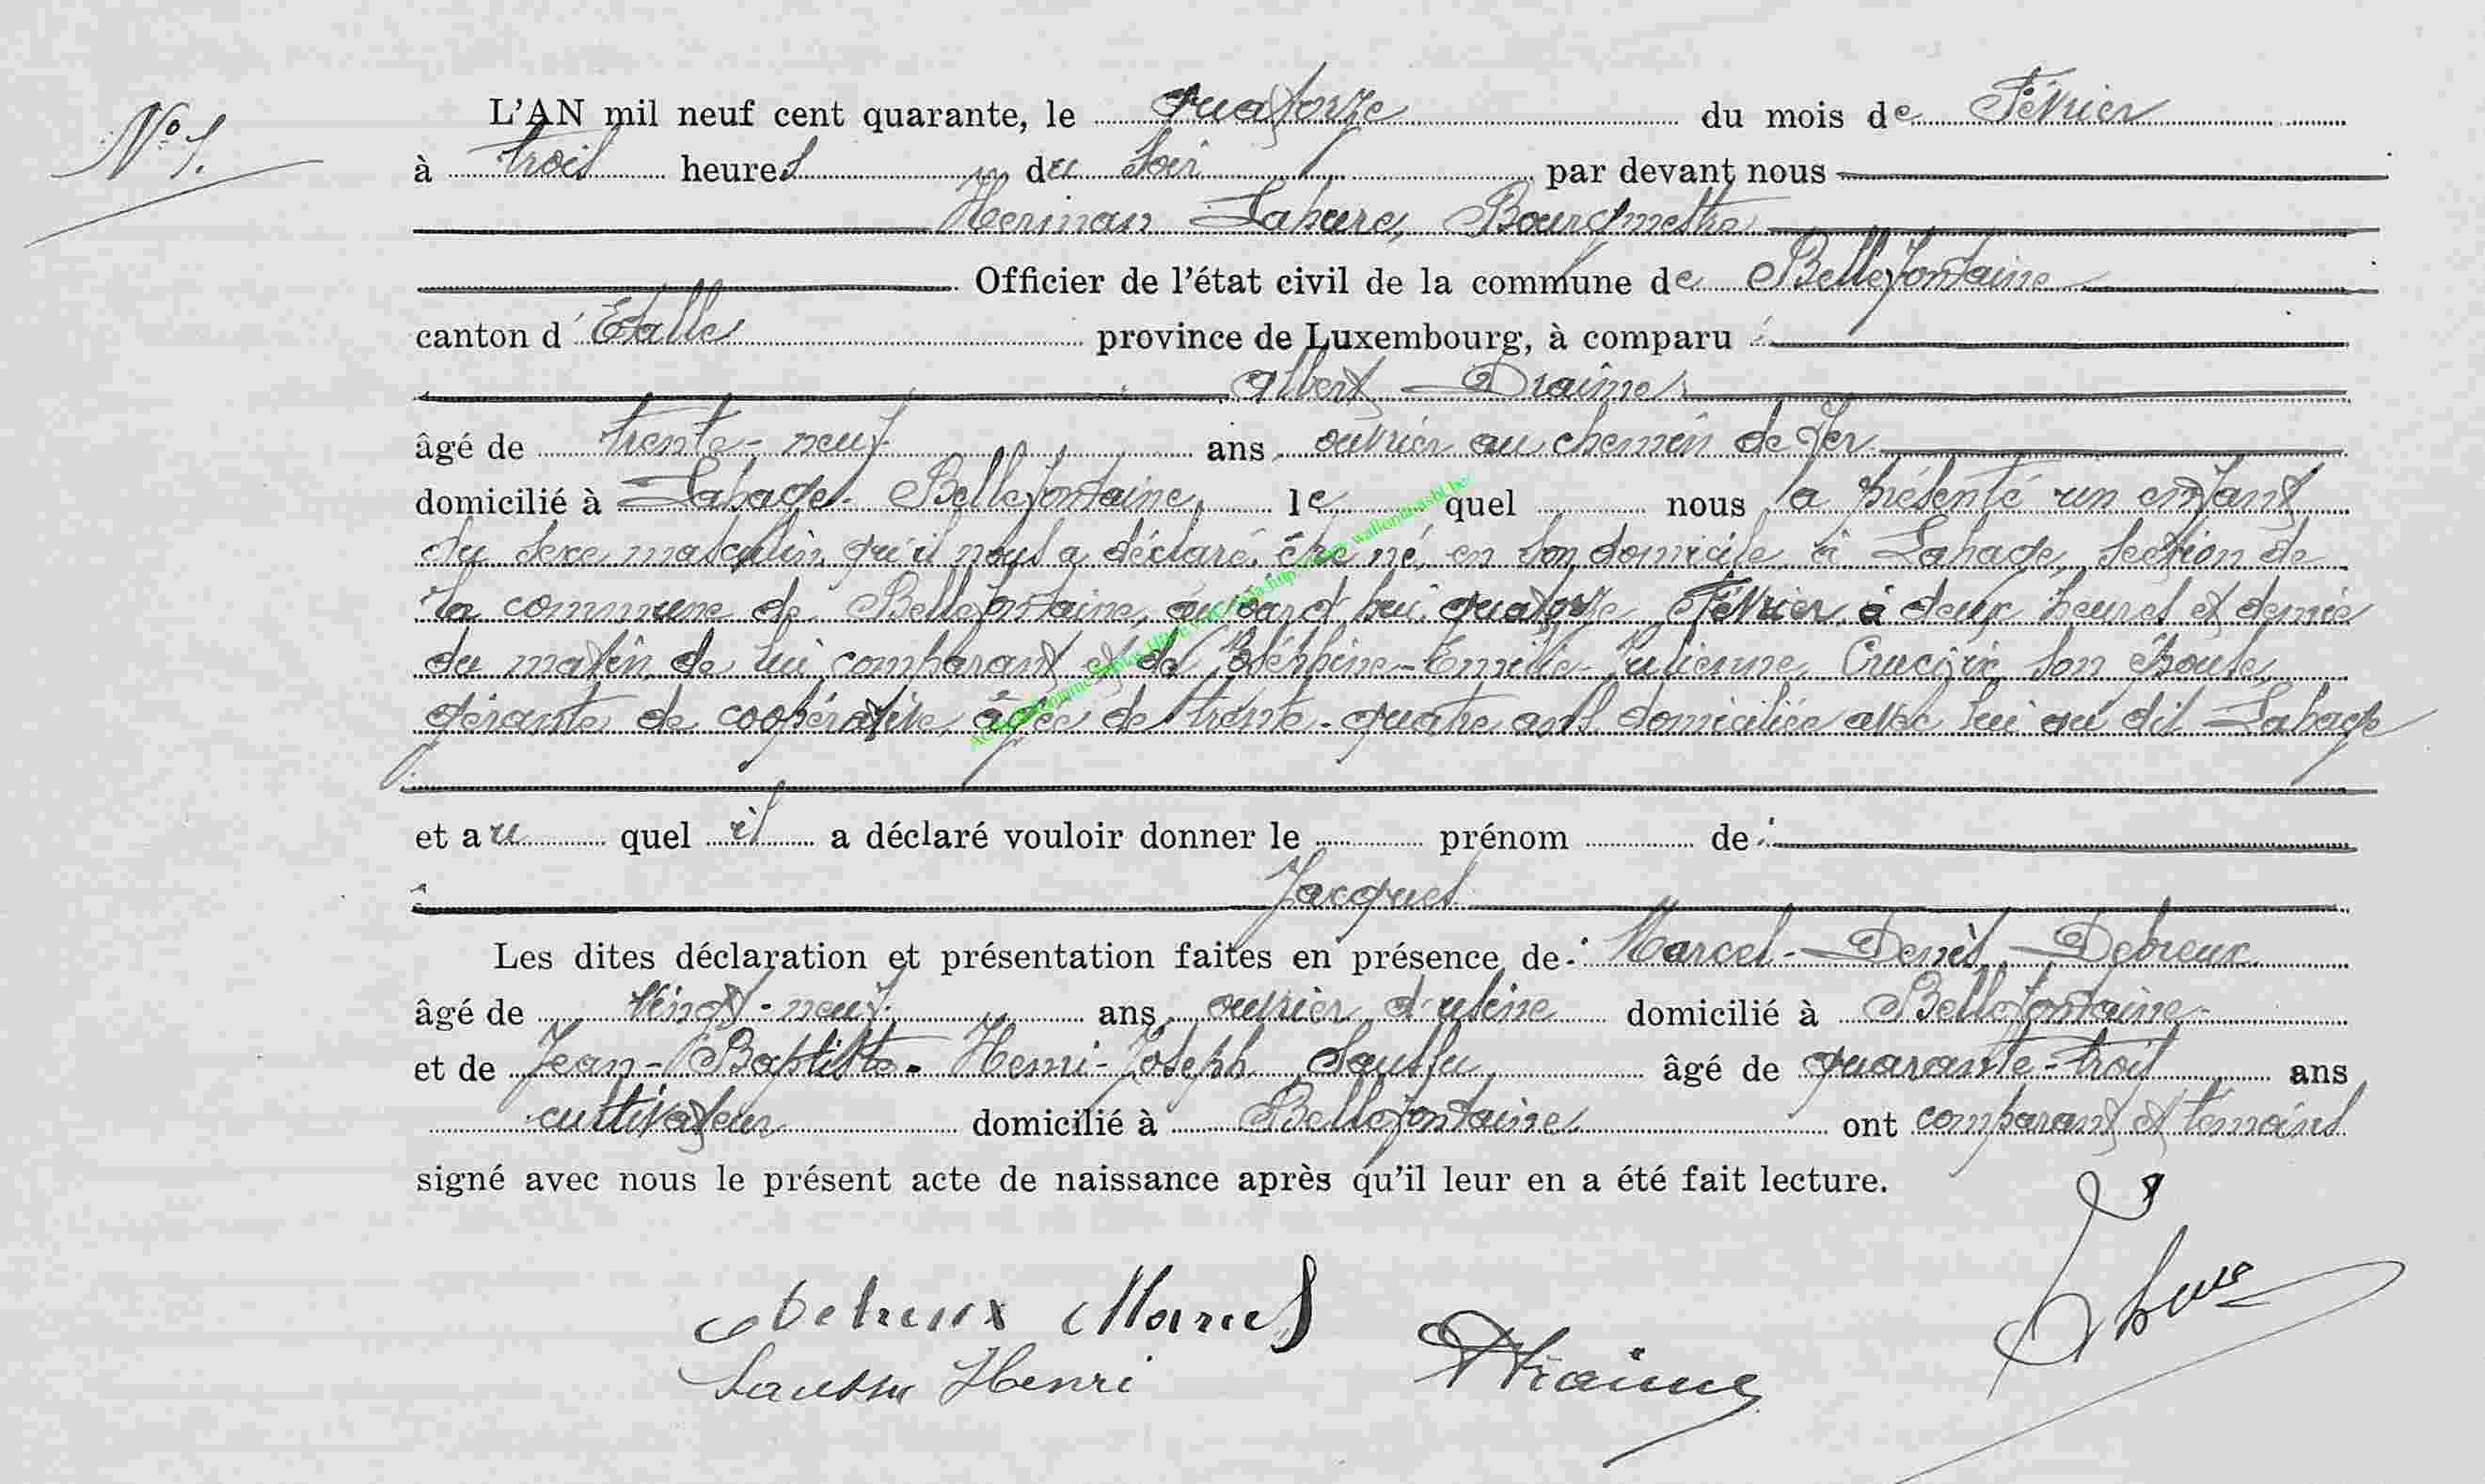 N° 1.
L'AN mil neuf cent quarante, le quatorze du mois de Février
à trois heures du soir par devant nous
Herman Lahure, Bourgmestre
Officier de l'état civil de la commune de Bellefontaine
canton d'Etalle province de Luxembourg, à comparu
Albert Draime
âgé de trente-neuf ans ouvrier au chemin de fer
domicilié à Lahage-Bellefontaine, le quel nous a présenté un enfant
du sexe masculin, qu'il nous a déclaré être né en son domicile à Lahage, section de
la commune de Bellefontaine, aujourd'hui quatorze Février à deux heures et demie
du matin, de lui comparant et de Joséphine-Emilie-Julienne Crucifix son épouse,
gérante de coopérative, âgée de trente-quatre ans domiciliée avec lui au dit Lahage
et au quel il a déclaré vouloir donner le prénom de
Jacques
Les dites déclaration et présentation faites en présence de Marcel-Denis Detreux
âgé de vingt-neuf ans, ouvrier d'usine domicilié à Bellefontaine
et de Jean-Baptiste-Henri-Joseph Saussu âgé de quarante-trois ans
cultivateur domicilié à Bellefontaine ont comparant et témoins
signé avec nous le présent acte de naissance après qu'il leur en a été fait lecture.
Detreux Marcel
Saussu Henri
Draime
Lahure